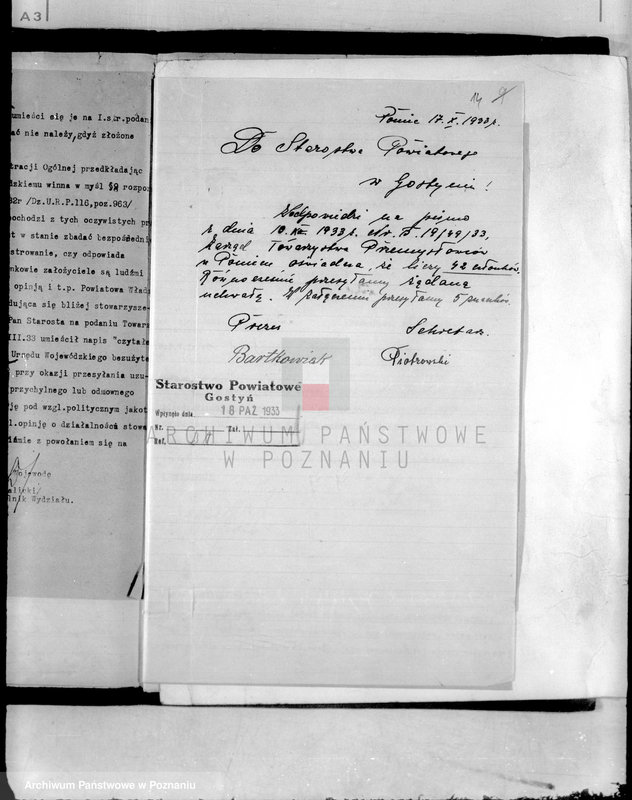 A 3
umieści się je na I.str.podan
ać nie należy,gdyż złożone
tracji Ogólnej przedkładając
dzkiemu winna w myśl §9 rozpo
32r /Dz.U.R.P.116,poz.963/
ochodzi z tych oczywistych pr
t w stanie zbadać bezpośrednio
strowanie, czy odpowiada
nkowie założyciele są ludźmi
opinją i t.p. Powiatowa Wład
dująca się bliżej stowarzysze
Pan Starosta na podaniu Towar
III.33 umieścił napis "czytałe
Urzędu Wojewódzkiego bezużyte
przy okazji przesyłania uzu-
przychylnego lub odmownego
ję pod wzgl.politycznym jakot
l.opinję o działalności stowa
śmie z powołaniem się na
Wojewodę
alicki/
lnik Wydziału.
14 9
Ponie 17. X. 1933 r.
Do Starostwa Powiatowego
w Gostyniu!
W odpowiedzi na pismo
z dnia 10. 1933 r. Nr. 19/49/33,
Zarząd Towarzystwa Przemysłowców
w Poniecu oświadcza, iż liczy 42 członków.
Równocześnie przesyłamy żądaną
uchwałę. W załączeniu przesyłamy 5
Prezes Sekretarz
Bartkowiak Piotrowski
Starostwo Powiatowe
Gostyń
Wpłynęło dnia 18 PAŹ 1933
Nr. Zał.
Ref.
ARCHIWUM PAŃSTWOWE
W POZNANIU
Archiwum Państwowe w Poznaniu